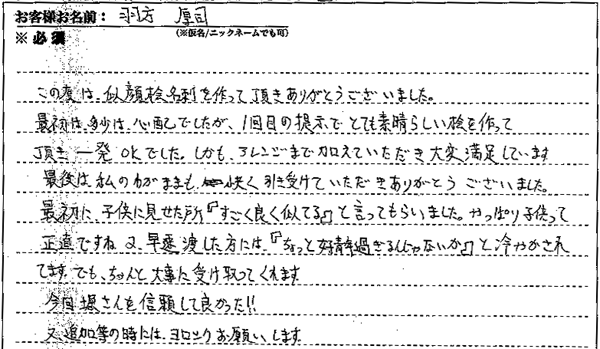 お客様お名前： 羽方 厚司
※必須 (※仮名/ニックネームでも可)
この度は、似顔絵名刺を作って頂きありがとうございました。
最初は、多少は、心配でしたが、1回目の提示でとても素晴らしい絵を作って
頂き 一発OKでした。しかも、アレンジまで加えていただき大変満足しています
最後は私のわがままも 快く引き受けていただきありがとうございました。
最初に、子供に見せた所『すごく良く似てる』と言ってもらいました。やっぱり子供って
正直ですね 又、早速渡した方には、『ちょっと好青年過ぎるんじゃないか』と冷やかされ
てます。でも、ちゃんと大事に受け取ってくれます
今回堀さんを信頼して良かった!!
又、追加等の時には、ヨロシクお願いします